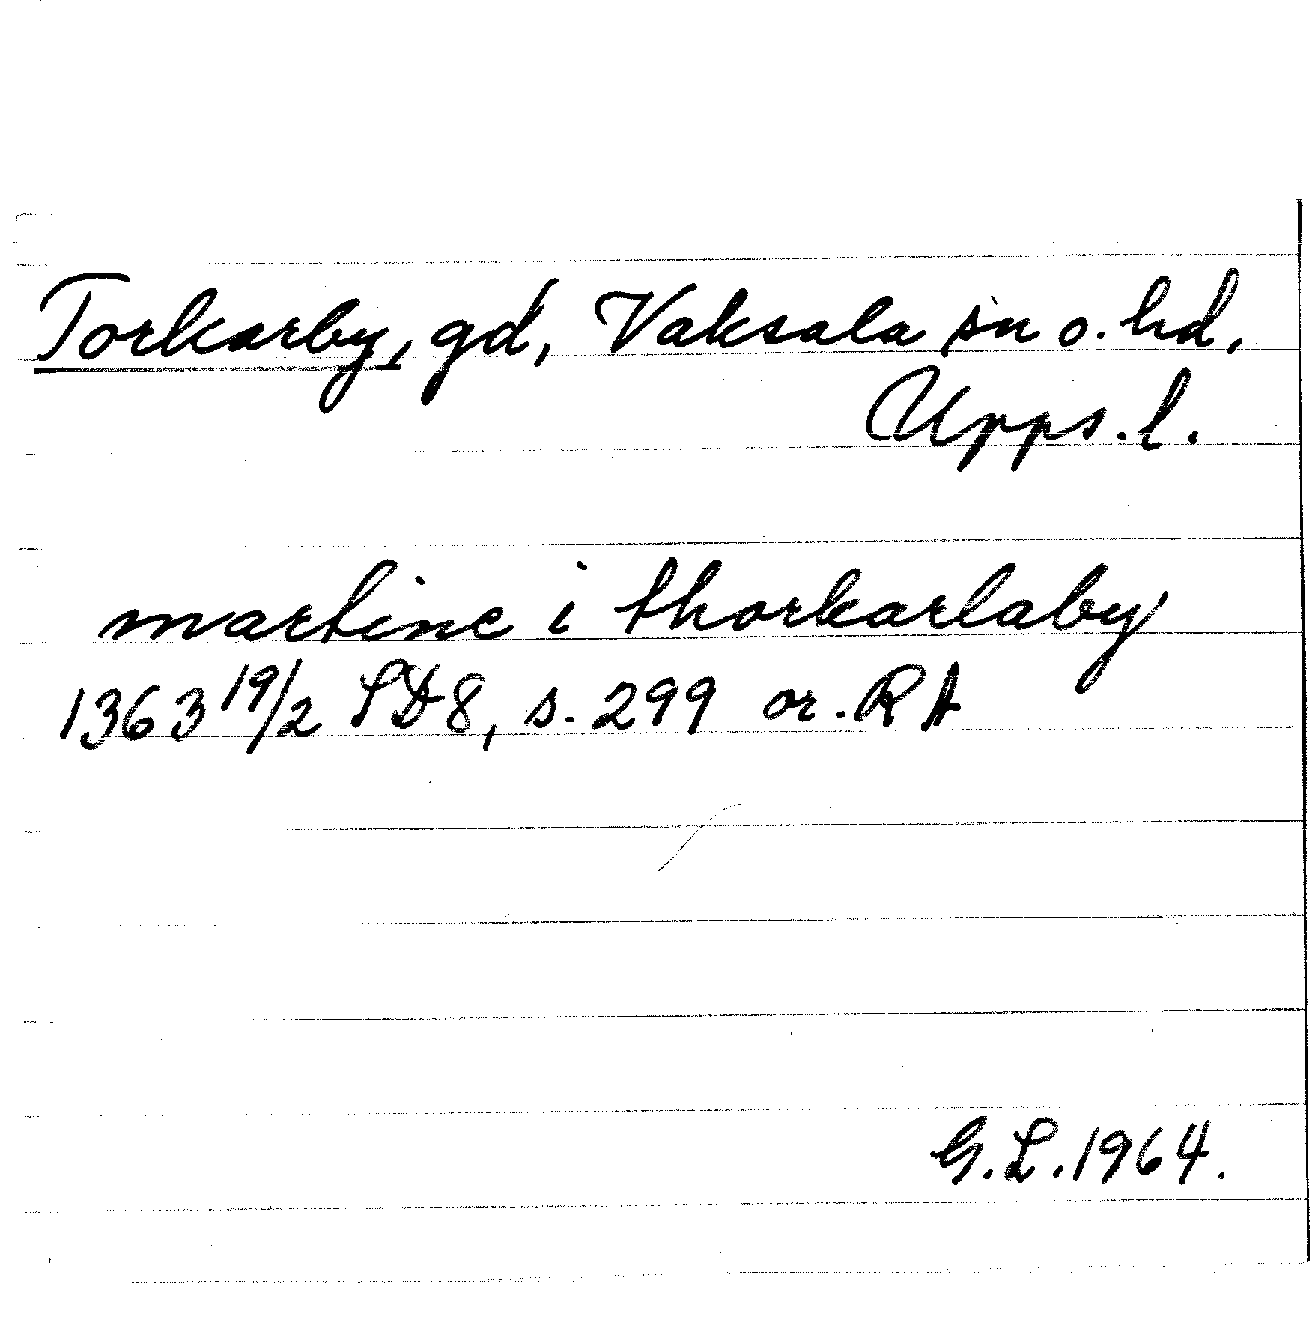 Torkarby, gd, Vaksala sn o. hd,
Upps. l.
martine i thorkarlaby
1363 19/2 SD8, s. 299 or. RA
G. L. 1964.